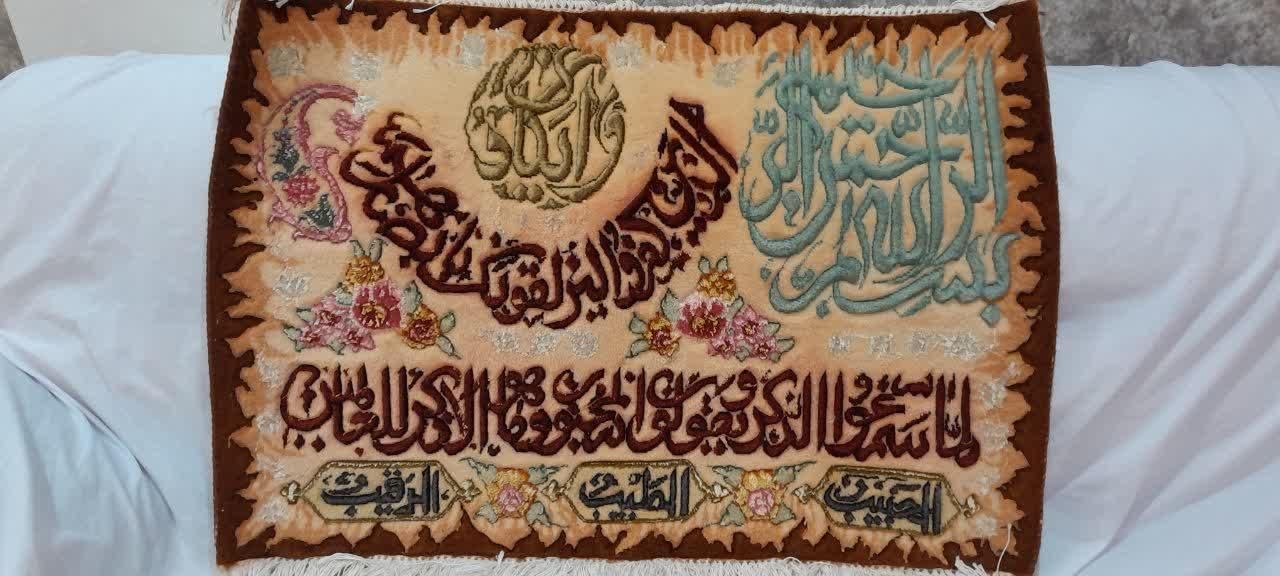 بسم الله الرحمن الرحيم
وان يكاد
الذين كفروا ليزلقونك بابصارهم
لما سمعوا الذكر ويقولون انه لمجنون وما هو الا ذكر للعالمين
الحبيب
الطبيب
الرقيب